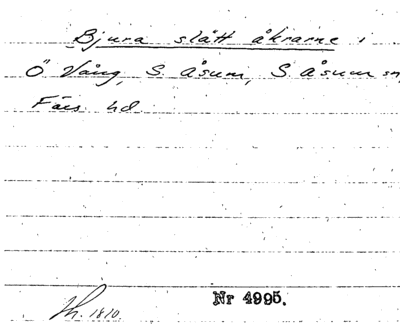 Bjura slått åkrarne i
Ö Vång, S. Åsum, S Åsum sn,
Färs hd
Nr 4995.
1810.